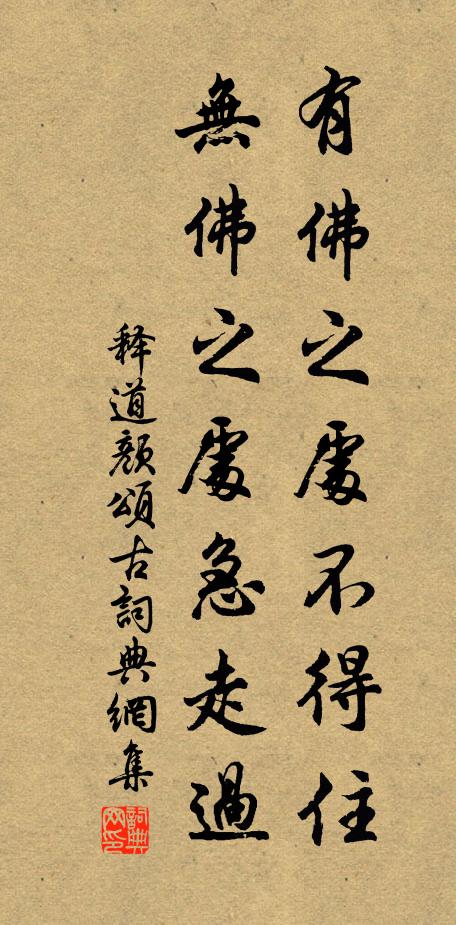 有佛之處不得住
無佛之處急走過
释道颜頌古詞典網集
詞典
网印